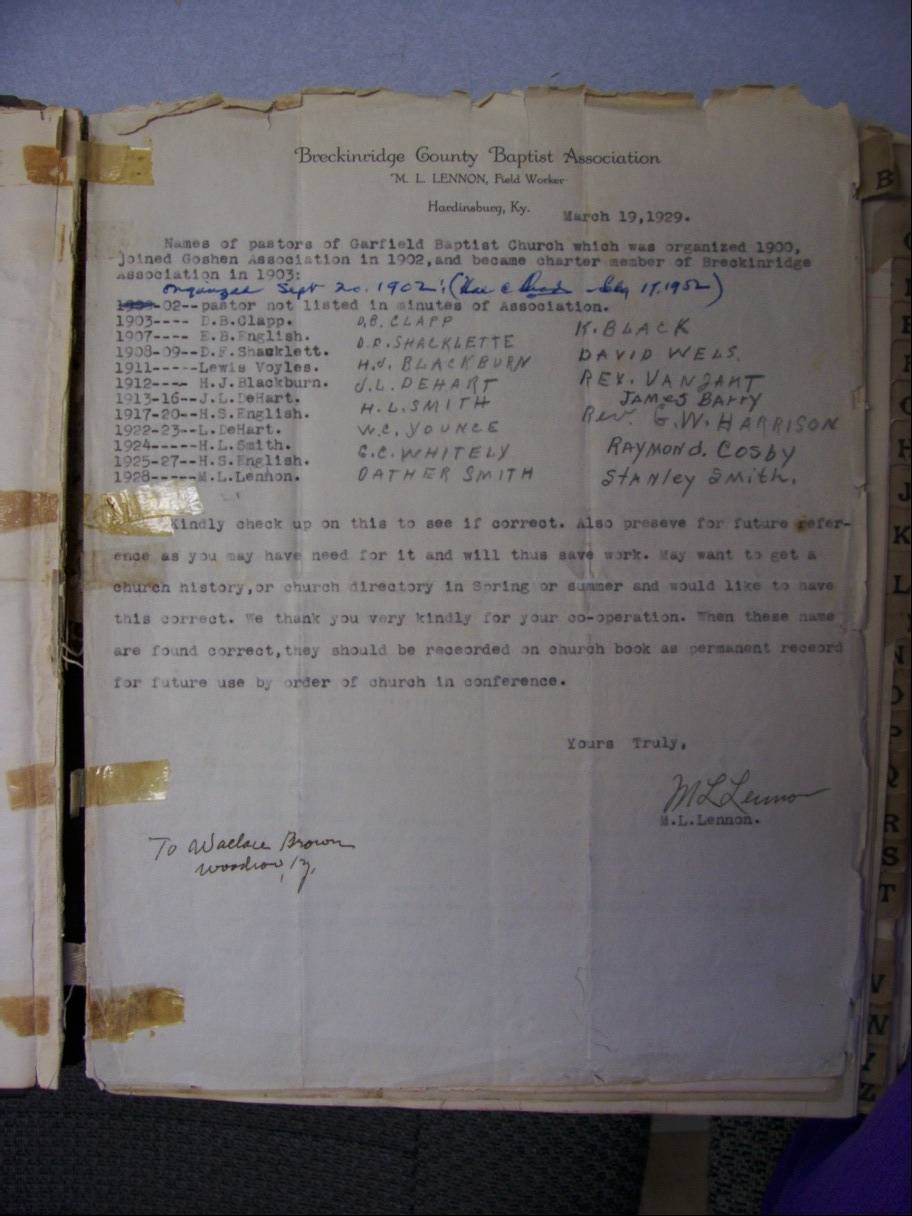 Breckinridge County Baptist Association
M. L. LENNON, Field Worker
Hardinsburg, Ky.
March 19,1929.
Names of pastors of Garfield Baptist Church which was organized 1900,
joined Goshen Association in 1902,and became charter member of Breckinridge
Association in 1903:
organized Sept 20. 1902! 17, 1952)
02--pastor not listed in minutes of Association.
1903---- D.B.Clapp. D.B. CLAPP K. BLACK
1907---- E.B.English. D.R. SHACKLETTE DAVID WELS.
1908-09--D.F.Shacklett. H.J. BLACKBURN REV. VANZANT
1911-----Lewis Voyles. J.L. DEHART JAMES BARRY
1912---- H.J.Blackburn. H.L. SMITH Rev. G.W. HARRISON
1913-16--J.L.DeHart. W.C. YOUNCE RAYMOND. COSBY
1917-20--H.S.English. G.C. WHITELY STANLEY SMITH.
1922-23--L.DeHart. OATHER SMITH
1924-----H.L.Smith.
1925-27--H.S.English.
1928------M.L.Lennon.
Kindly check up on this to see if correct. Also preseve for future refer-
ence as you may have need for it and will thus save work. May want to get a
church history,or church directory in Spring or summer and would like to have
this correct. We thank you very kindly for your co-operation. When these name
are found correct,they should be receorded on church book as permanent receord
for future use by order of church in conference.
Yours Truly,
M L Lennon
M.L.Lennon.
To Wallace Brown
Woodrow, Ky,
B
C
E
F
G
H
J
K
L
N
O
P
Q
R
S
T
V
W
Y
Z